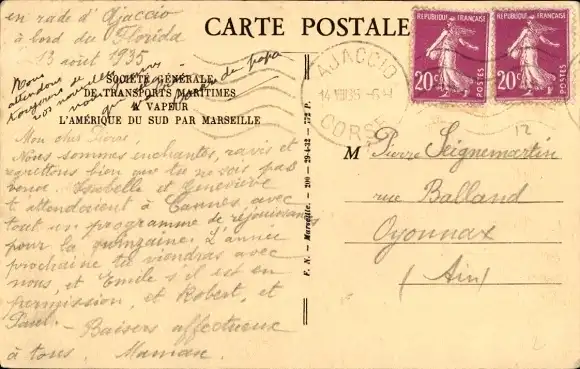 en rade d'Ajaccio
à bord du Florida
13 août 1935
CARTE POSTALE
Nous
attendons
vos nouvelles
de papa
SOCIÉTÉ GÉNÉRALE
DE TRANSPORTS MARITIMES
A VAPEUR
L'AMÉRIQUE DU SUD PAR MARSEILLE
Mon cher Pierre,
Nous sommes enchantés, ravis et
regrettons bien que tu ne sois pas
venu. Isabelle et Geneviève
t'attendaient à Cannes, avec
tout un programme de réjouissances
pour la quinzaine. L'année
prochaine tu viendras avec
nous, et Emile s'il est en
permission, et Robert, et
Paul. - Baisers affectueux
à tous. Maman.
F. N. - Marseille. - 200 - 29-4-32 - 172 P.
AJACCIO
CORSE
REPUBLIQUE FRANÇAISE
20c
POSTES
REPUBLIQUE FRANÇAISE
20c
POSTES
12
M Pierre Seignemartin
rue Balland
Oyonnax
(Ain)